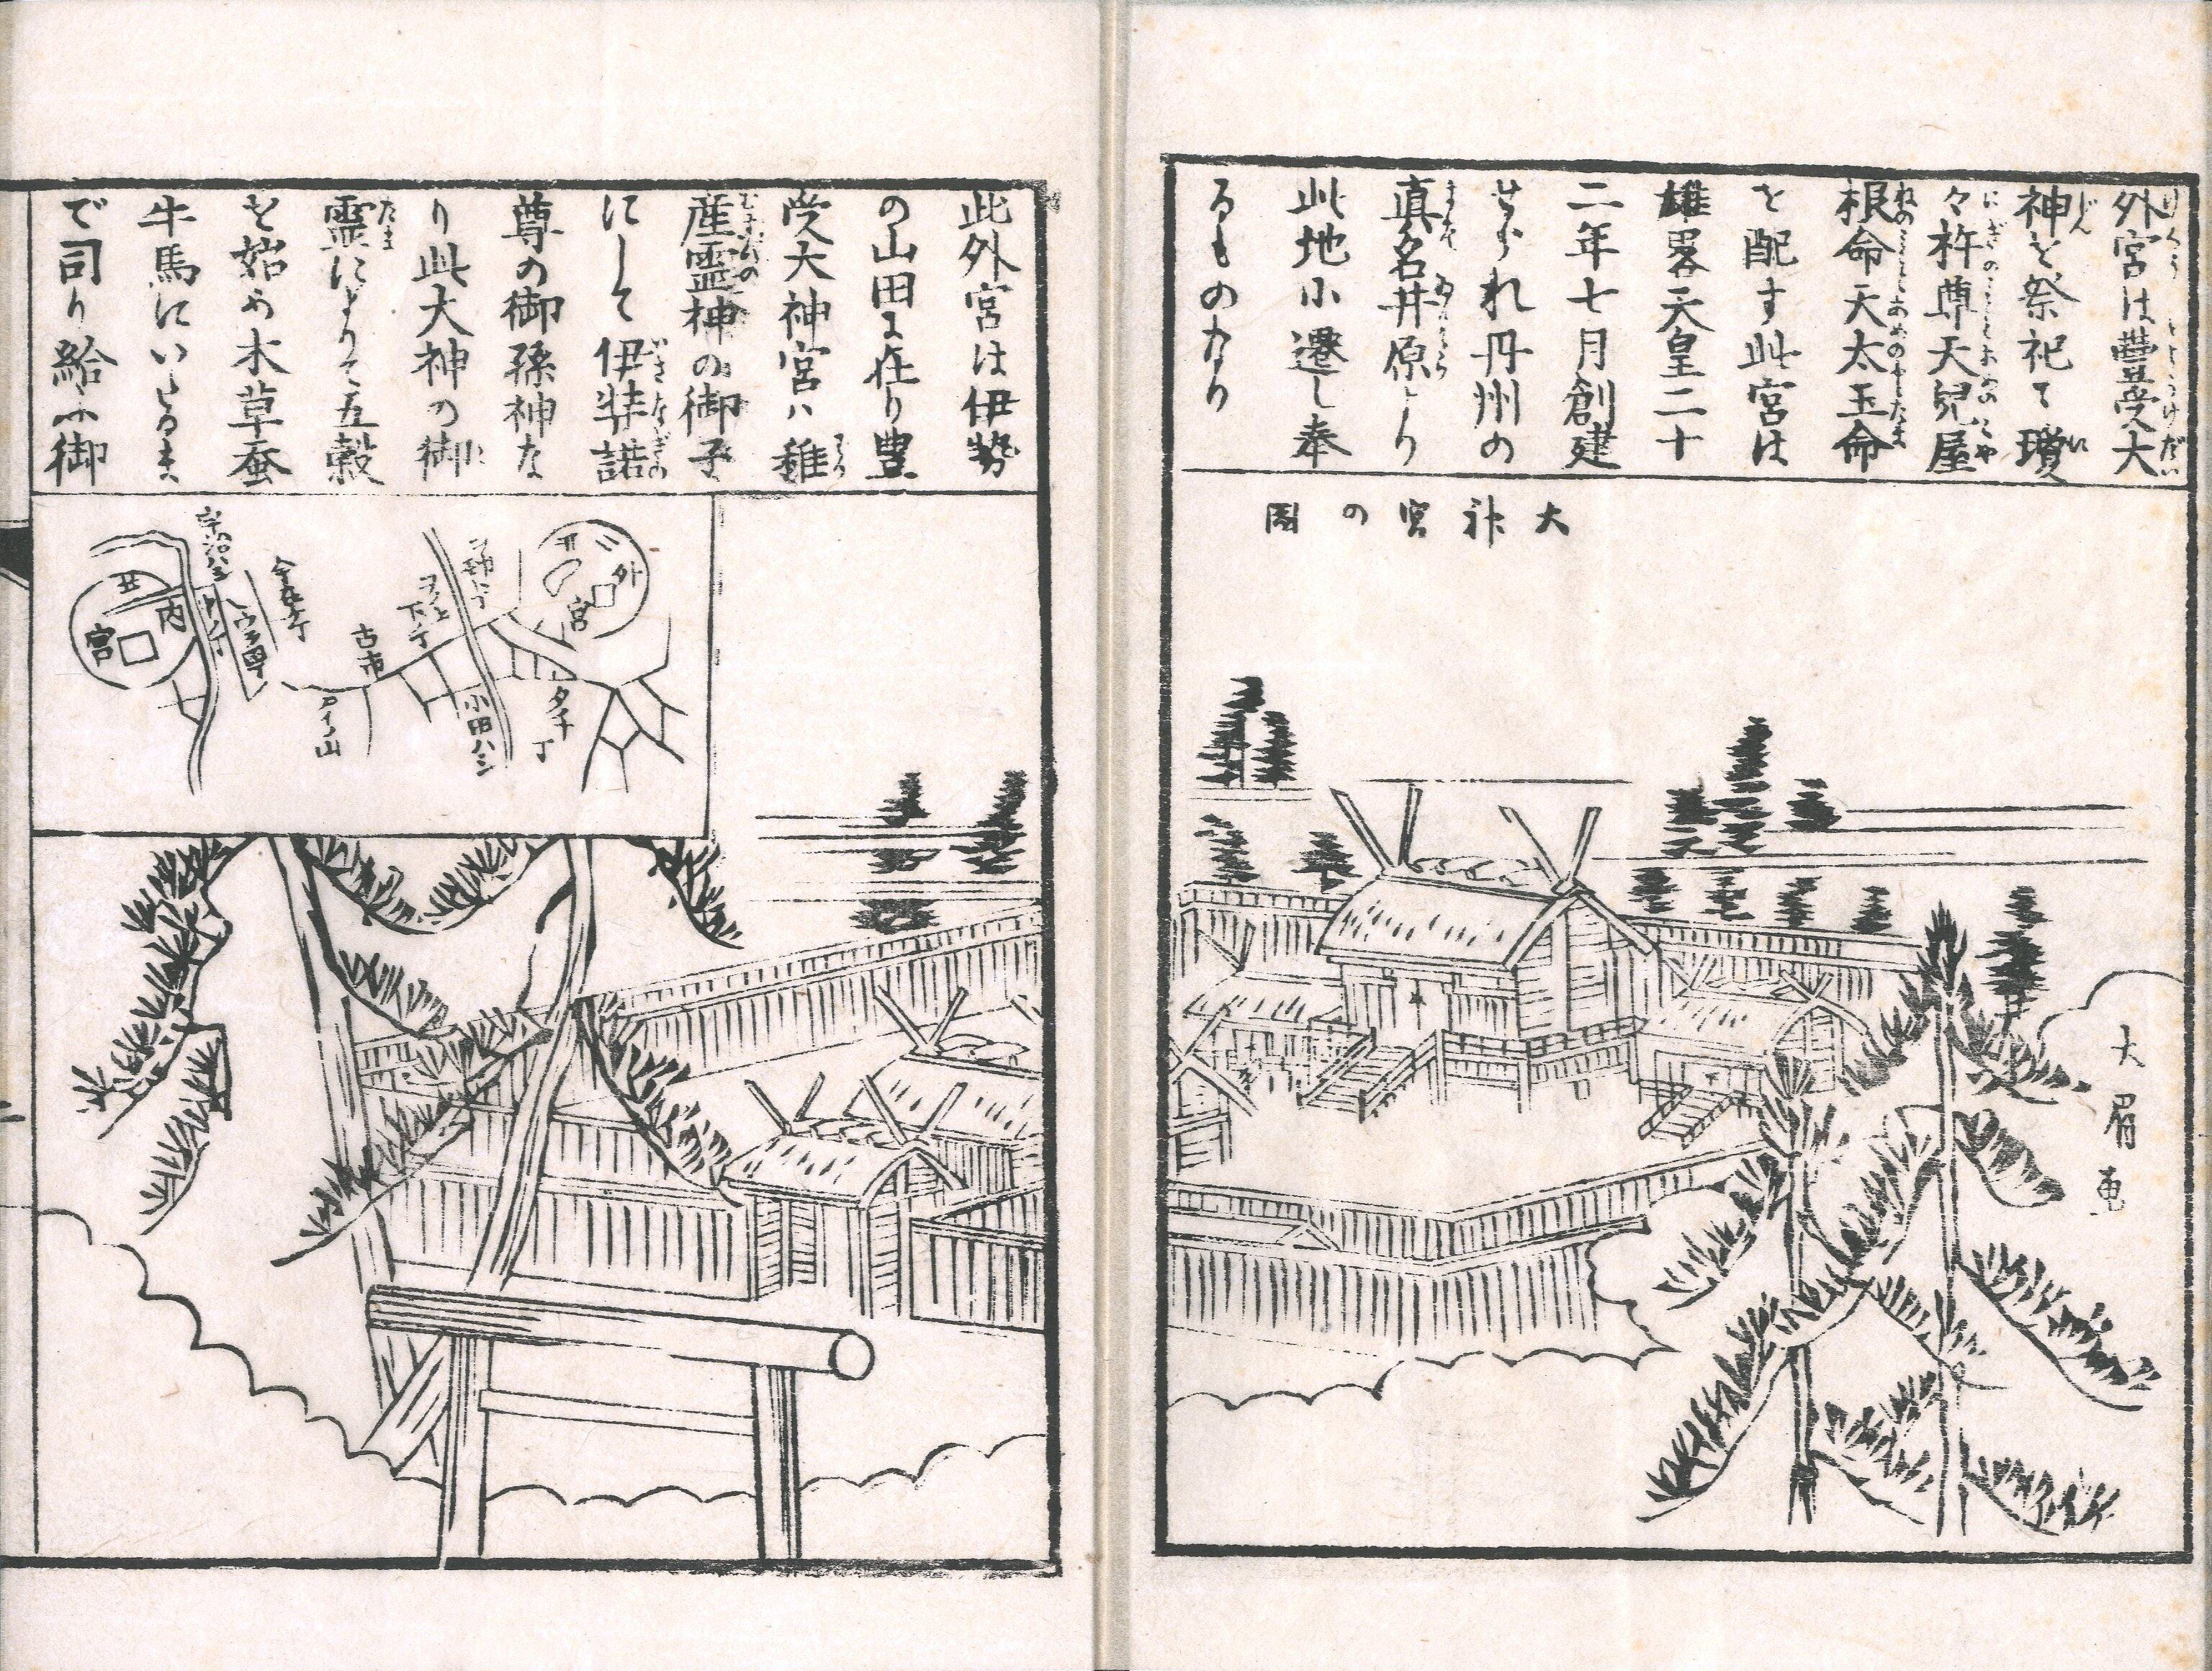 外宮は豊受大
神を祭祀て瓊
々杵尊天兒屋
根命天太玉命
を配す此宮は
雄畧天皇二十
二年七月創建
せられ丹州の
真名井原より
此地に遷し奉
るものなり
大神宮の圖
大眉画
此外宮は伊勢
の山田に在り豊
受大神宮ハ稚
産霊神の御子
にして伊弉諾
尊の御孫神な
り此大神の御
霊によりて五穀
を始め木草蚕
牛馬にいたるま
で司り給ふ御
外宮
妙見丁
下丁
小田ハシ
タチ丁
古市
アイノ山
今在ケ丁
宇治ハシ
内宮